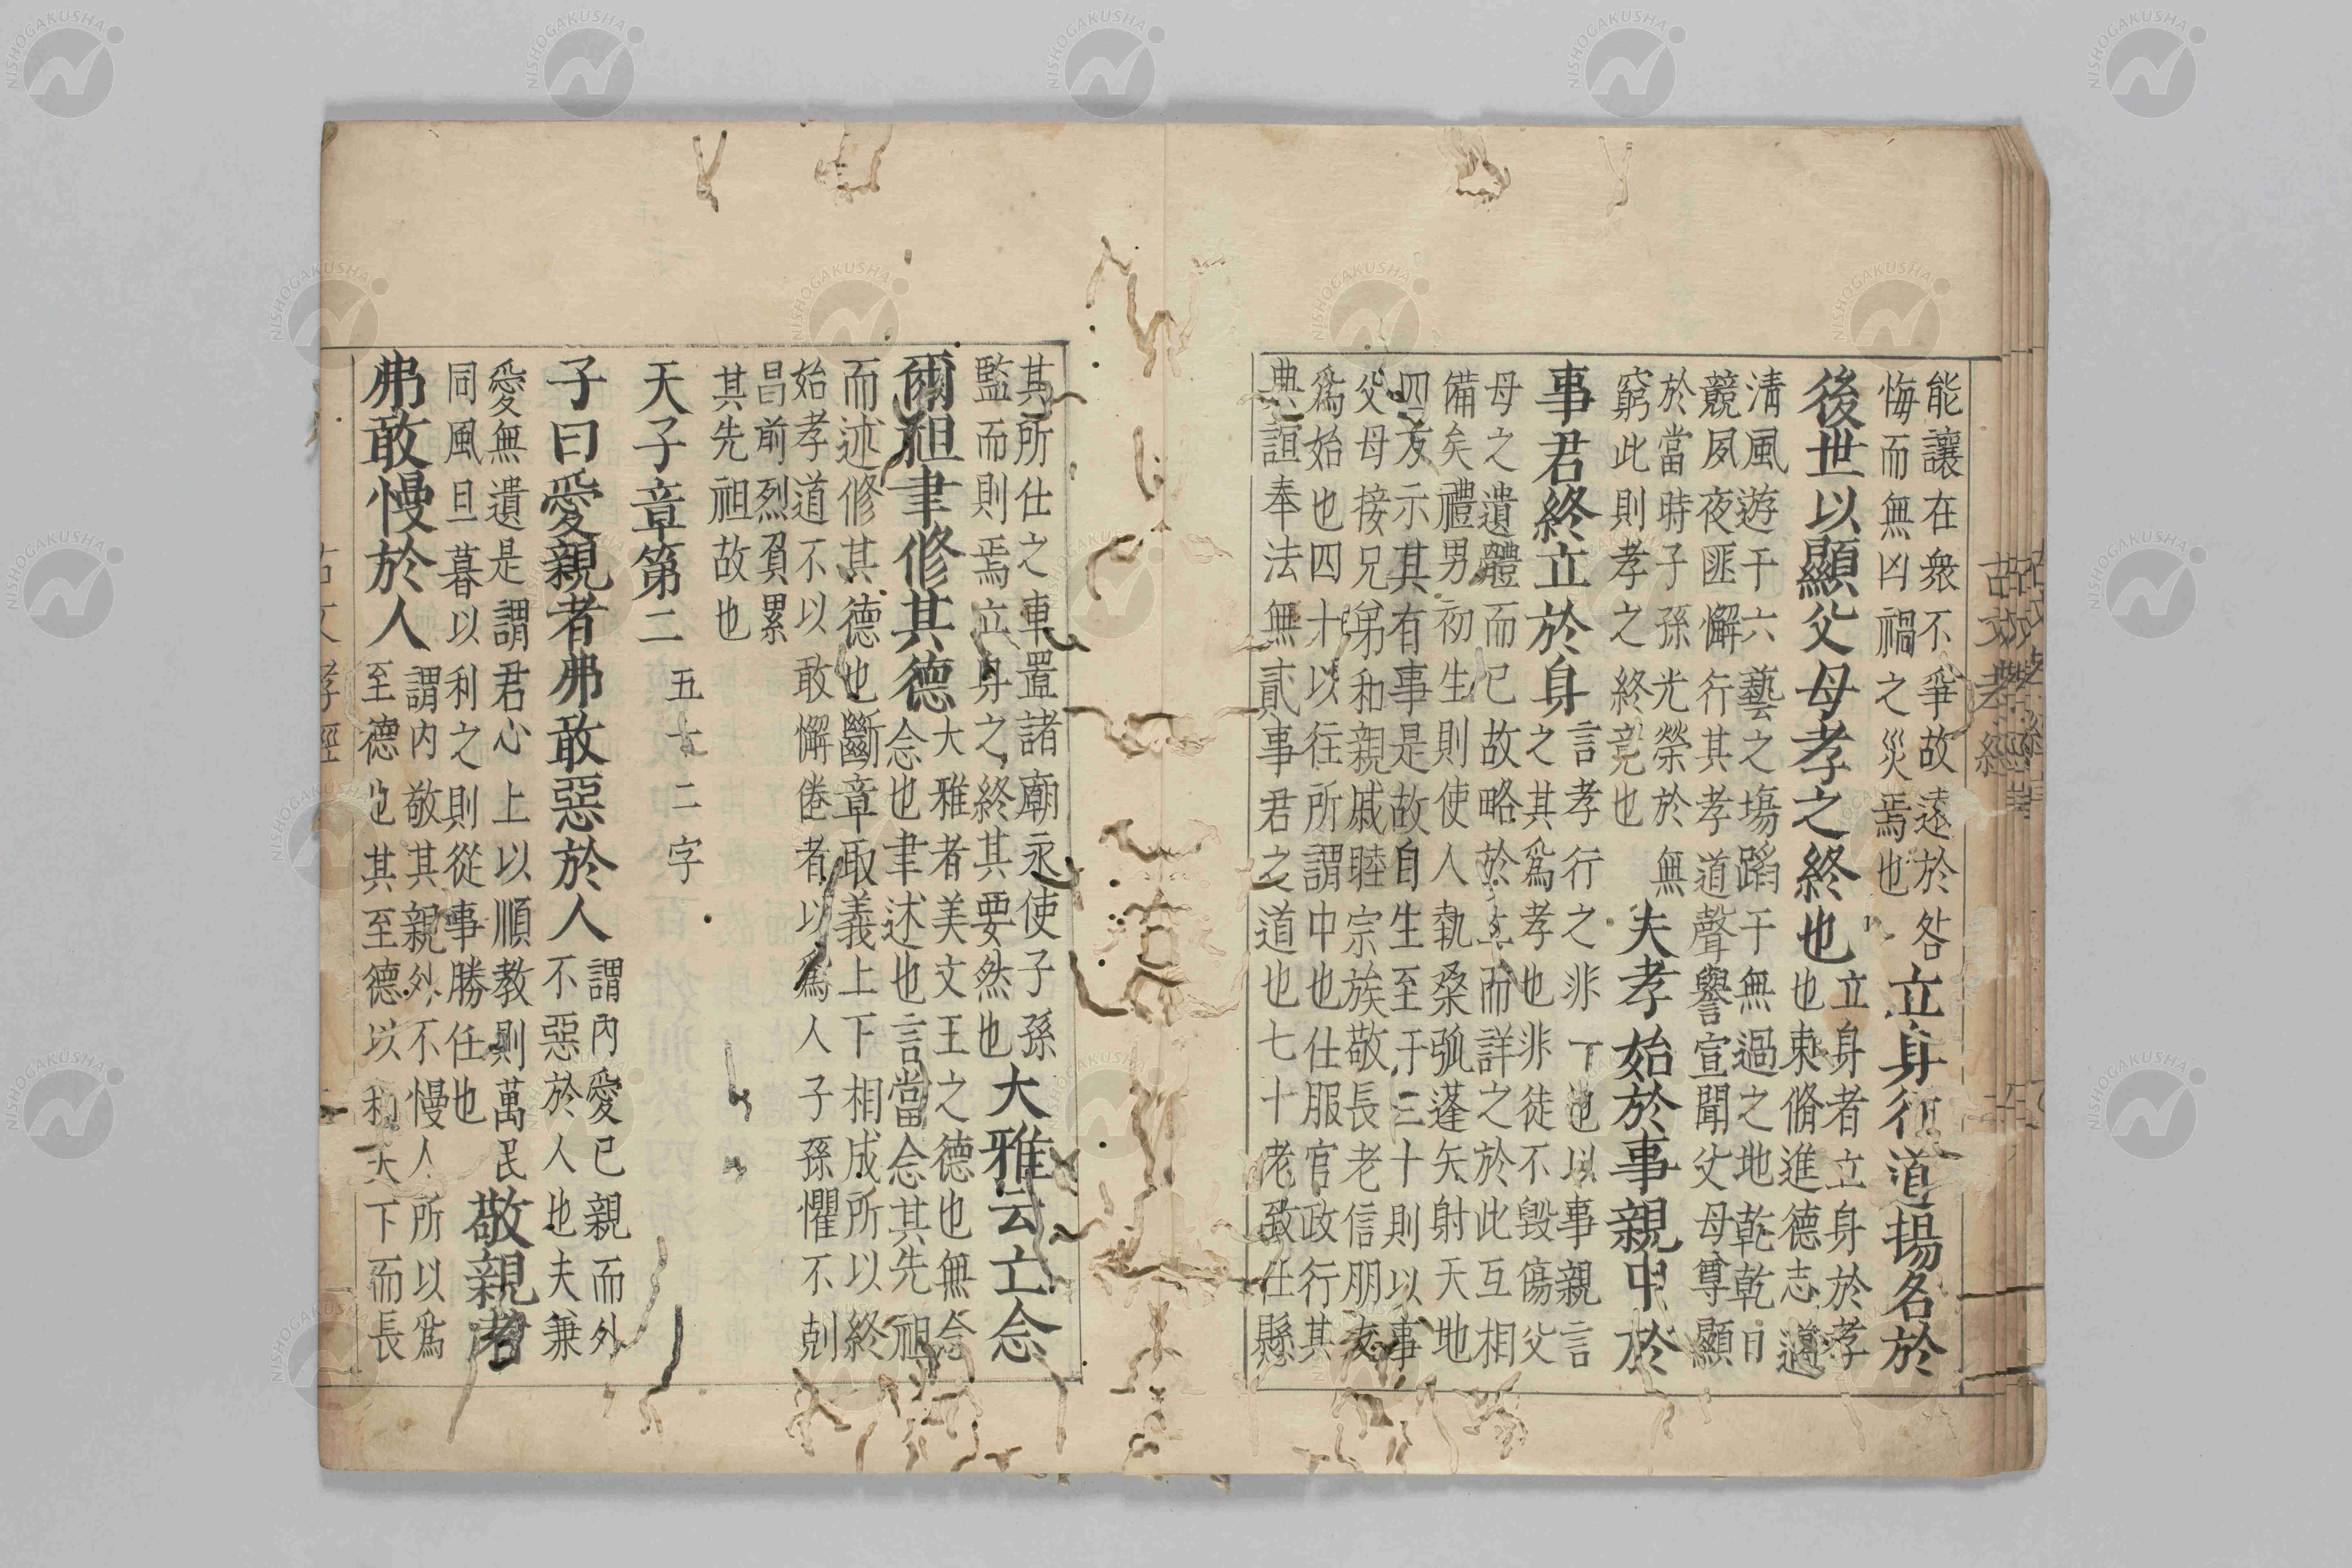 能讓在衆不爭故遠於咎
悔而無凶禍之災焉也
立身行道揚名於
後世以顯父母孝之終也
立身者立身於孝
也束脩進德志邁
清風遊于六藝之塲蹈于無過之地乾乾日
競夙夜匪懈行其孝道聲譽宣聞父母尊顯
於當時子孫光榮於無
窮此則孝之終竟也
夫孝始於事親中於
事君終立於身
言孝行之非一也以事親言
之其爲孝也非徒不毀傷父
母之遺體而已故略於上而詳之於此互相
備矣禮男初生則使人執桑弧蓬矢射天地
四方示其有事是故自生至于三十則以事
父母接兄弟和親戚睦宗族敬長老信朋友
爲始也四十以往所謂中也仕服官政行其
典誼奉法無貳事君之道也七十老致仕懸
其所仕之車置諸廟永使子孫
監而則焉立身之終其要然也
大雅云亡念
爾祖聿修其德
大雅者美文王之德也無念
念也聿述也言當念其先祖
而述修其德也斷章取義上下相成所以終
始孝道不以敢懈倦者以爲人子孫懼不剋
昌前烈負累
其先祖故也
天子章第二
五十二字
子曰愛親者弗敢惡於人
謂內愛已親而外
不惡於人也夫兼
愛無遺是謂君心上以順教則萬民
同風旦暮以利之則從事勝任也
敬親者
弗敢慢於人
謂内敬其親外不慢人所以爲
至德也其至德以和天下而長
古文孝經